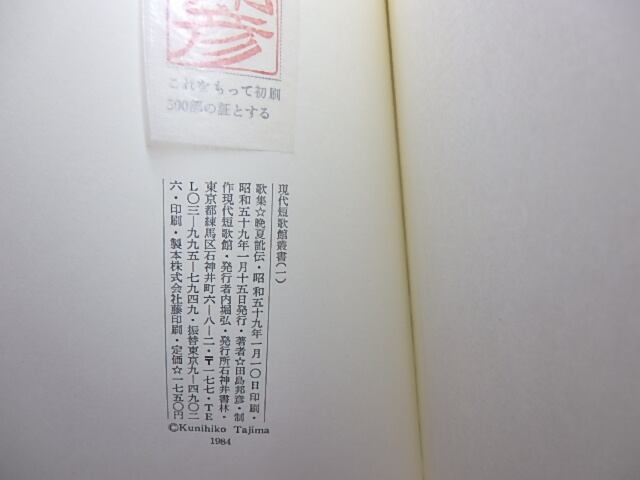 彦
これをもって初刷
500部の証とする
現代短歌館叢書(一)
歌集☆晩夏訛伝・昭和五十九年一月一〇日印刷・
昭和五十九年一月十五日発行・著者☆田島邦彦・制
作現代短歌館・発行者内堀弘・発行所石神井書林・
東京都練馬区石神井町六―八―二・〒一七七・TE
L〇三―九九五―七九四九・振替東京九―四九〇二
六・印刷・製本株式会社藤印刷・定価☆一七五〇円
©Kunihiko Tajima
1984